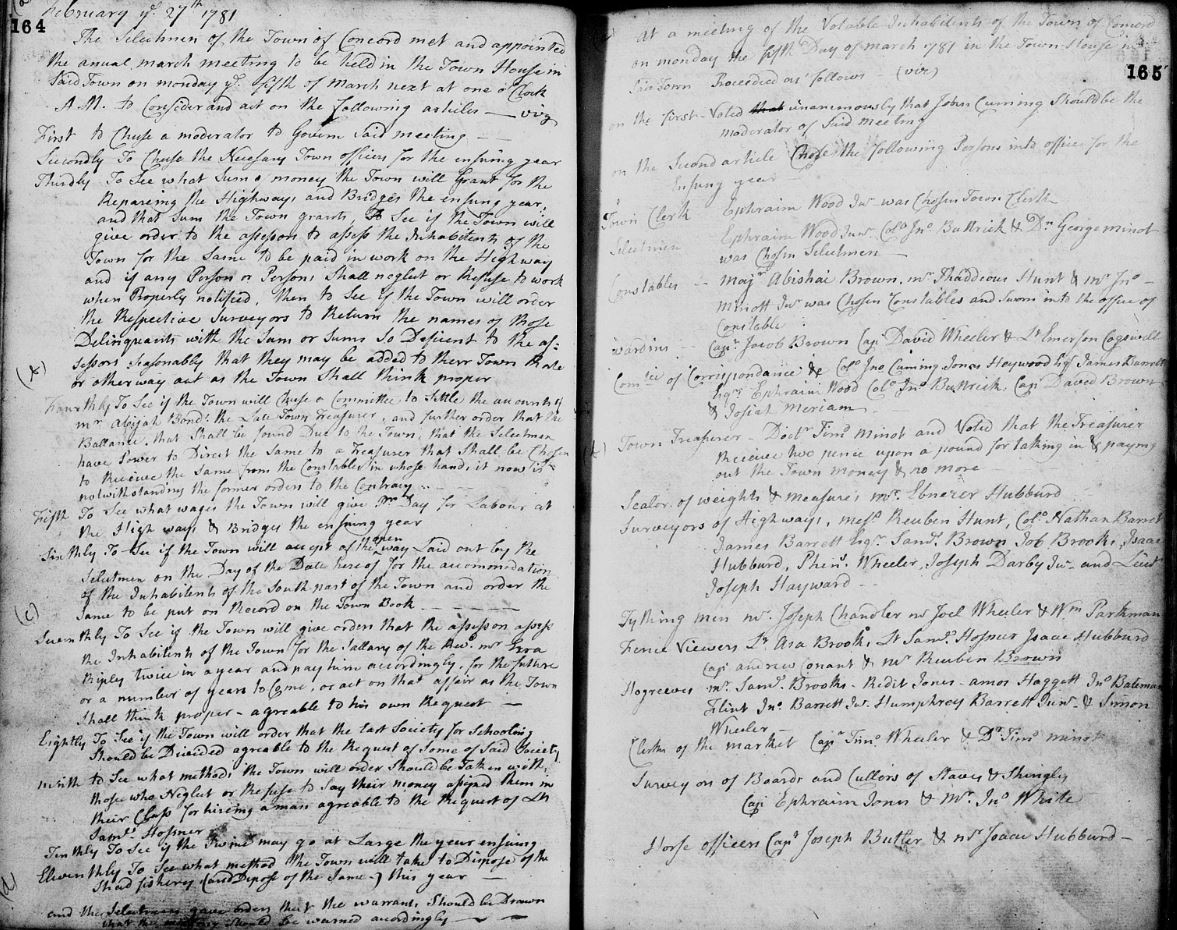 164
February ye 27th 1781
The Selectmen of the Town of Concord met and appointed
the anual march meeting to be held in the Town House in
Said Town on monday ye fifth of March next at one o Clock
A.M. to Consider and act on the following articles — viz
First to Chuse a moderator to Govern Said meeting —
Secondly To Chuse the Necesary Town officers for the ensuing year
Thirdly To See what Sum of money the Town will Grant for the
Repareing the Highways and Bridges the ensuing year,
and that Sum the Town grants, to See if the Town will
give order to the assessors to assess the Inhabitents of the
Town for the Same to be paid in work on the Highway
and if any Person or Persons Shall neglect or Refuse to work
when Properly notified, then to See if the Town will order
the Respective Surveyors to Return the names of those
Delinquants with the Sum or Sums So Deficent to the as-
sessors seasonably that they may be added to their Town Rate
(A)
or otherway act as the Town Shall think proper
Fourthly To See if the Town will Chuse a Committee to Settle the accounts of
mr Abijah Bond the Late Town Treasurer, and further order that the
Ballance that Shall be found Due to the Town, that the Selectmen
have Power to Direct the Same to a Treasurer that Shall be Chosen
to Receive the Same from the Constables in whose hands it now is
notwithstanding the former orders to the Contrary
Fifth To See what wages the Town will give pr Day for Labour at
the High ways & Bridges the ensuing year
Sixthly To See if the Town will accept of the open way Laid out by the
Selectmen on the Day of the Date hereof for the accommodation
of the Inhabitents of the South part of the Town and order the
(C)
Same to be put on Record on the Town Book
Seventhly To See if the Town will give orders that the assessors assess
the Inhabitents of the Town for the Sallary of the Revd mr Ezra
Ripley twice in a year and pay him accordingly, for the future
or a number of years to Come, or act on that affair as the Town
Shall think proper - agreable to his own Request —
Eightly To See if the Town will order that the East Society for Schooling
Should be Divided agreable to the Request of Some of Said Society
Ninth to See what methods the Town will order Should be Taken with
those who Neglect or Refuse to Pay their money assigned them in
their Class for hireing a man agreable to the Request of Lt
Saml Hosmer
Tenthly To See if the Swine may go at Large the year ensuing
Eleventhly To See what method the Town will take to Dispose of the
Shad fishery (and Dispose of the Same) this year —
(d)
and the Selectmen gave orders that the warrants Should be Drawn
that the meeting Should be warned acordingly — —
At a meeting of the Votable Inhabitents of the Town of Concord
on monday the fifth Day of march 1781 in the Town House in
165
Said Town Proceeded as follows (viz)
on the first Voted that unanimously that John Cuming Should be the
moderator of Said meeting
on the Second article Chose the following Persons into office for the
Ensuing year
Town Clerk Ephraim Wood Junr was Chosen Town Clerk
Selectmen Ephraim Wood Junr. Colo Jno Buttrick & Dn George minot
was Chosen Selectmen
Constables -- Majr Abishai Brown, mr Thaddeous Hunt & mr Jno
Minott Junr was Chosen Constables and Sworn into the office of
Constable
wardins -- Capt Jacob Brown Capt David Wheeler & Lt Emerson Cogswell
Comtee of Correspondance & Colo Jno Cuming Jonas Haywood Esqr James Barrett
Esqr Ephraim Wood Colo Jno Buttrick Capt David Brown
& Josiah Meriam
Town Treasurer - Doctr Timo Minot and Voted that the Treasurer
Receive two pence upon a pound for taking in & paying
out the Town money & no more —
Sealor of weights & measures mr Ebenezer Hubburd
Surveyors of Highways, messrs Reuben Hunt, Colo Nathan Barret
James Barrett Esqr Saml Brown Job Brooks, Isaac
Hubburd, Wheeler, Joseph Darby Junr and Lieut
Joseph Hayward
Tything men mr Joseph Chandler mr Joel Wheeler & Wm Parkman
Fence Viewers Lt Asa Brooks, Lt Saml Hosmer Isaac Hubburd
Capt andrew Conant & mr Reuben Brown
Hogreeves mr Saml Brooks - Redit Jones - amos Haggett Jno Bateman
Flint Jno Barrett Junr Humphrey Barrett Junr & Simon
Wheeler
Clerkes of the market Capt Timo Wheeler & Dr Timo minot
Surveyors of Boards and Cullors of Staves & Shingles
Capt Ephraim Jones & Mr Jno White
Horse officers Capt Joseph Butler & mr Isaac Hubburd —